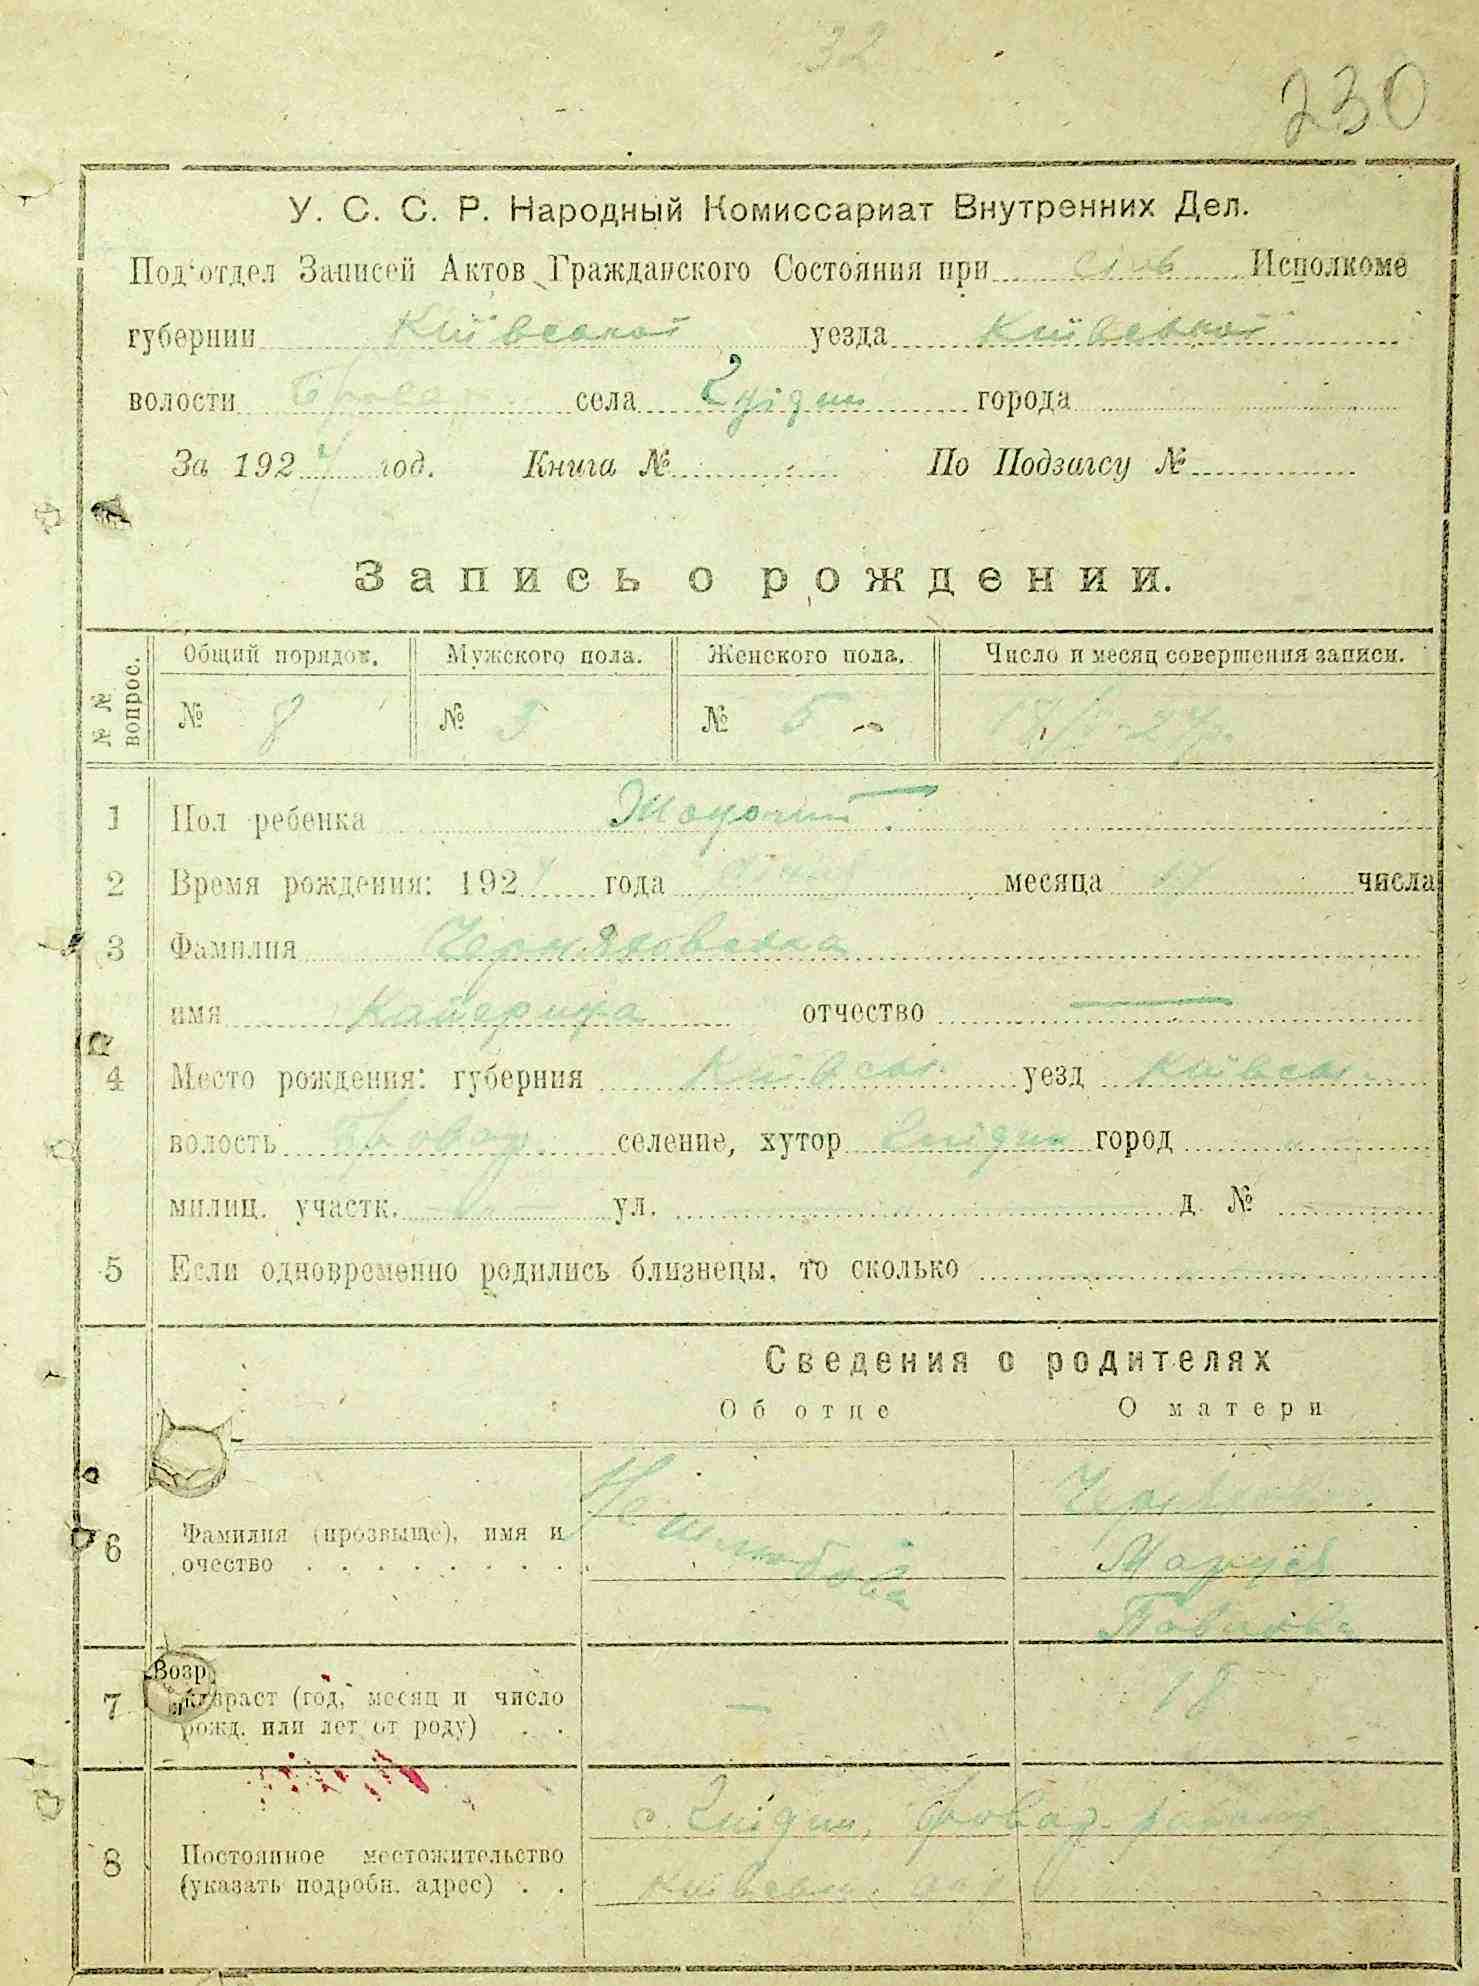 32
230
У. С. С. Р. Народный Комиссариат Внутренних Дел.
Под'отдел Записей Актов Гражданского Состояния при Исполкоме
губернии Київської уезда Київської
волости Бровар села Гнідин города
За 1924 год. Книга № По Подзагсу №
Запись о рождении.
№ № вопрос. Общий порядок. Мужского пола. Женского пола. Число и месяц совершения записи.
№ 8 № 5 № 5
1 Пол ребенка
2 Время рождения: 1924 года месяца числа
3 Фамилия Черняховська
имя Катерина отчество —
4 Место рождения: губерния Київськ. уезд Київськ.
волость Бровар селение, хутор Гнідин город
милиц. участк. — ул. — д. № —
5 Если одновременно родились близнецы, то сколько
Сведения о родителях
Об отце О матери
6 Фамилия (прозвище), имя и очество
Черняховська
Павлівна
7 Возр
възраст (год, месяц и число рожд. или лет от роду) — 18
8 Постоянное местожительство (указать подробн. адрес)
с. Гнідин, Бровар. району
Київськ. окр.